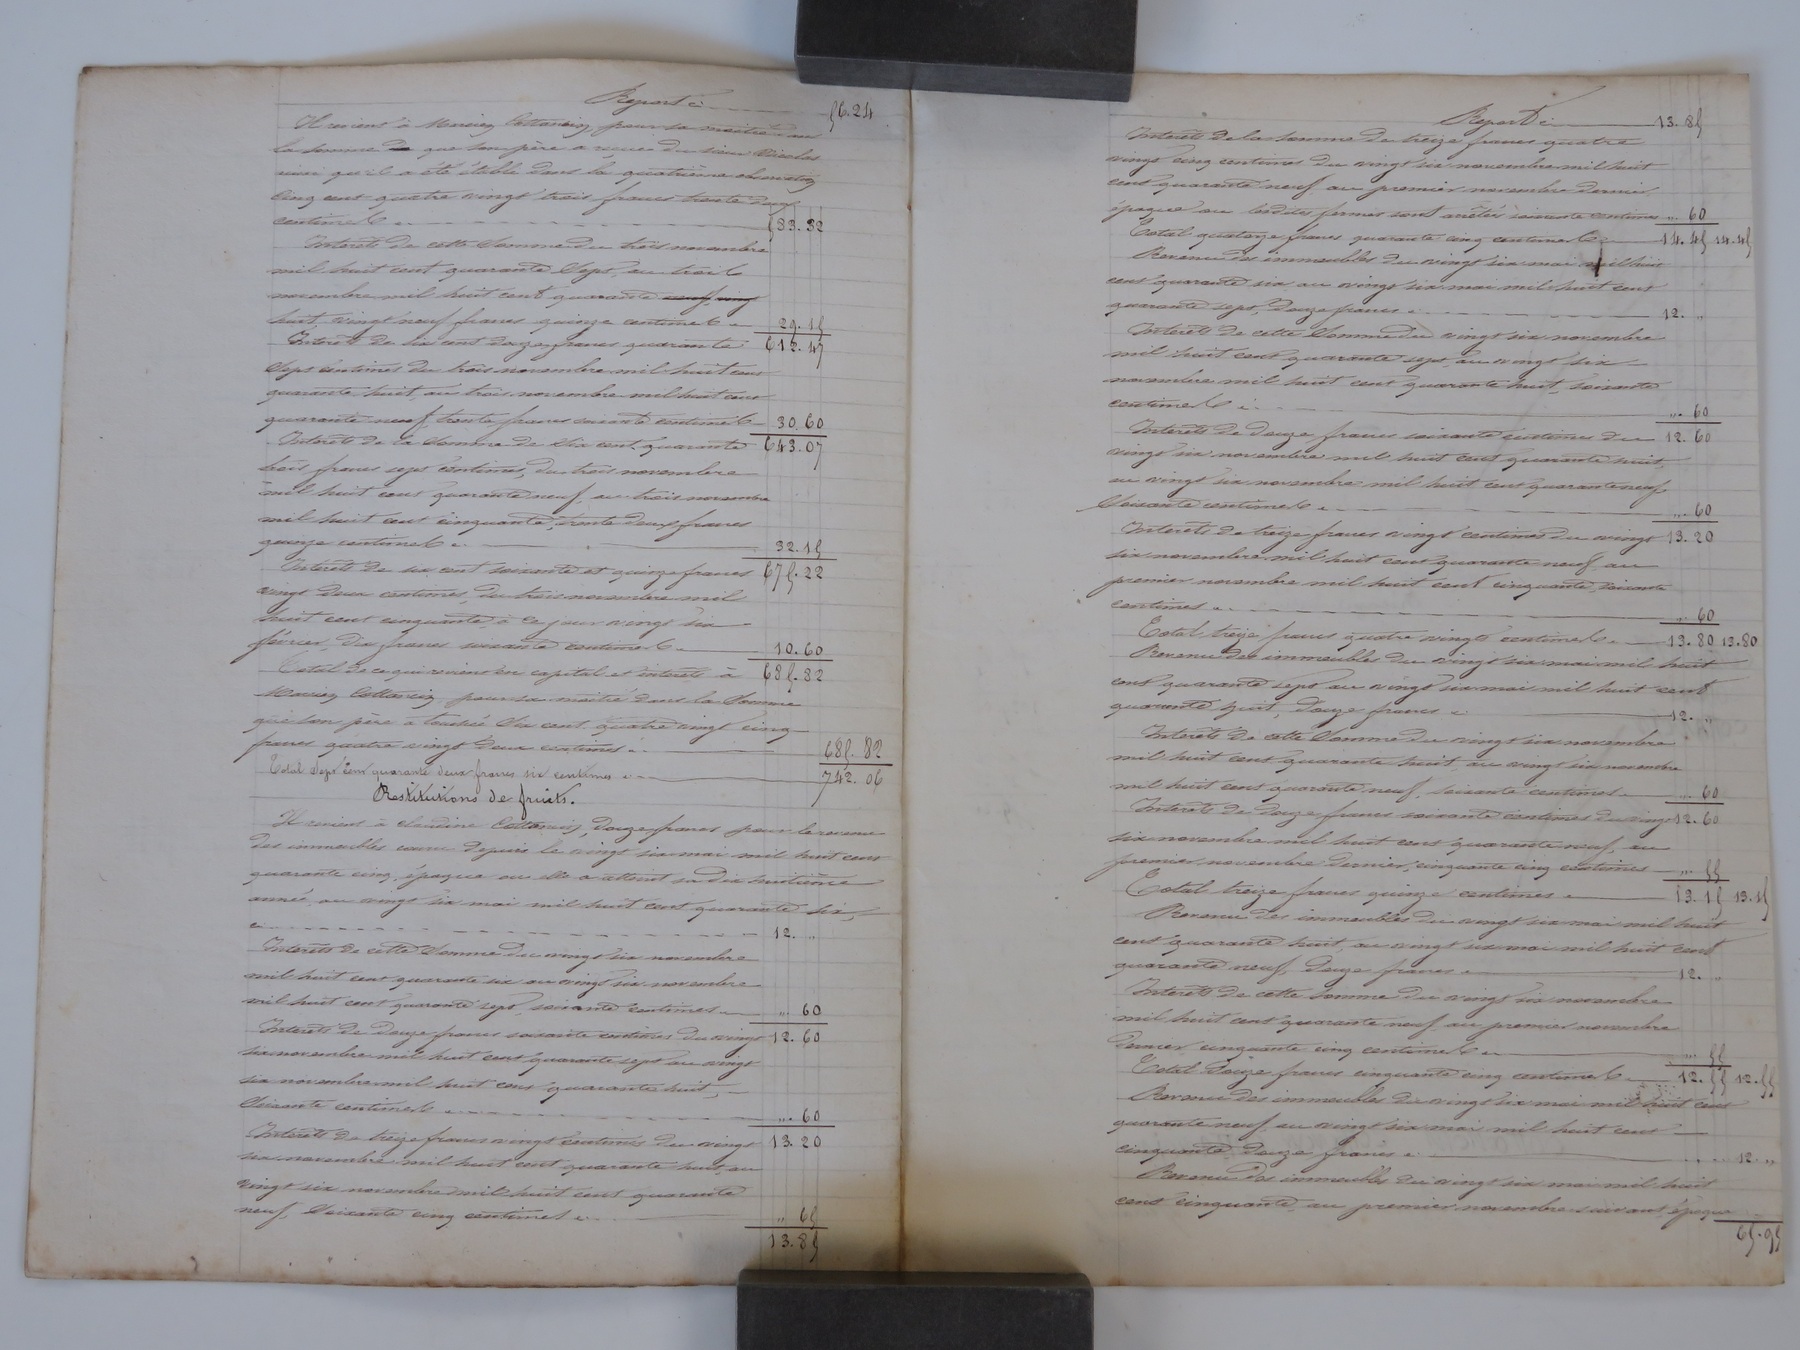 Report : 56.24
Il revient à Marien Cottancin, pour sa moitié dans
la somme de que son père a reçue du sieur Nicolas
ainsi qu'il a été établi dans la quatrième observation
cinq cent quatre vingt trois francs trente deux
centimes 583.32
Intérêts de cette somme du trois novembre
mil huit cent quarante sept, au trois
novembre mil huit cent quarante
huit, vingt neuf francs quinze centimes 29.15
Intérêts de six cent douze francs quarante 612.47
sept centimes du trois novembre mil huit cent
quarante huit, au trois novembre mil huit cent
quarante neuf, trente francs soixante centimes 30.60
Intérêts de la somme de six cent quarante 643.07
trois francs sept centimes, du trois novembre
mil huit cent quarante neuf, au trois novembre
mil huit cent cinquante, trente deux francs
quinze centimes 32.15
Intérêts de six cent soixante et quinze francs 675.22
vingt deux centimes, du trois novembre mil
huit cent cinquante à ce jour vingt six
février, dix francs soixante centimes 10.60
Total de ce qui revient en capital et intérêts à 685.82
Marien Cottancin pour sa moitié dans la somme
que son père a touchée six cent quatre vingt cinq
francs quatre vingt deux centimes 685.82
Total sept cent quarante deux francs six centimes 742.06
Restitutions de fruits.
Il revient à Claudine Cottancin, douze francs pour le revenu
des immeubles couru depuis le vingt six mai mil huit cent
quarante cinq, époque où elle a atteint sa dix huitième
année, au vingt six mai mil huit cent quarante six,
12. "
Intérêts de cette somme du vingt six novembre
mil huit cent quarante six au vingt six novembre
mil huit cent quarante sept, soixante centimes " 60
Intérêts de douze francs soixante centimes du vingt 12.60
six novembre mil huit cent quarante sept au vingt
six novembre mil huit cent quarante huit,
soixante centimes " 60
Intérêts de treize francs vingt centimes du vingt 13.20
six novembre mil huit cent quarante huit, au
vingt six novembre mil huit cent quarante
neuf, soixante cinq centimes " 65
13.85
Report : 13.85
Intérêts de la somme de treize francs quatre
vingt cinq centimes du vingt six novembre mil huit
cent quarante neuf au premier novembre dernier
époque où lesdites fermes sont arrêtées soixante centimes " 60
Total quatorze francs quarante cinq centimes 14.45 14.45
Revenu des immeubles du vingt six mai mil huit
cent quarante six au vingt six mai mil huit cent
quarante sept, douze francs 12. "
Intérêts de cette somme du vingt six novembre
mil huit cent quarante sept, au vingt six
novembre mil huit cent quarante huit, soixante
centimes " 60
Intérêts de douze francs soixante centimes du 12.60
vingt six novembre mil huit cent quarante huit,
au vingt six novembre mil huit cent quarante neuf
soixante centimes " 60
Intérêts de treize francs vingt centimes du vingt 13.20
six novembre mil huit cent quarante neuf au
premier novembre mil huit cent cinquante, soixante
centimes " 60
Total treize francs quatre vingts centimes 13.80 13.80
Revenu des immeubles du vingt six mai mil huit
cent quarante sept au vingt six mai mil huit cent
quarante huit, douze francs 12. "
Intérêts de cette somme du vingt six novembre
mil huit cent quarante huit, au vingt six novembre
mil huit cent quarante neuf, soixante centimes " 60
Intérêts de douze francs soixante centimes du vingt 12.60
six novembre mil huit cent quarante neuf, au
premier novembre dernier, cinquante cinq centimes " 55
Total treize francs quinze centimes 13.15 13.15
Revenu des immeubles du vingt six mai mil huit
cent quarante huit, au vingt six mai mil huit cent
quarante neuf, douze francs 12. "
Intérêts de cette somme du vingt six novembre
mil huit cent quarante neuf au premier novembre
dernier cinquante cinq centimes " 55
Total douze francs cinquante cinq centimes 12.55 12.55
Revenu des immeubles du vingt six mai mil huit cent
quarante neuf au vingt six mai mil huit cent
cinquante, douze francs 12. "
Revenu des immeubles du vingt six mai mil huit
cent cinquante, au premier novembre suivant, époque
65.95